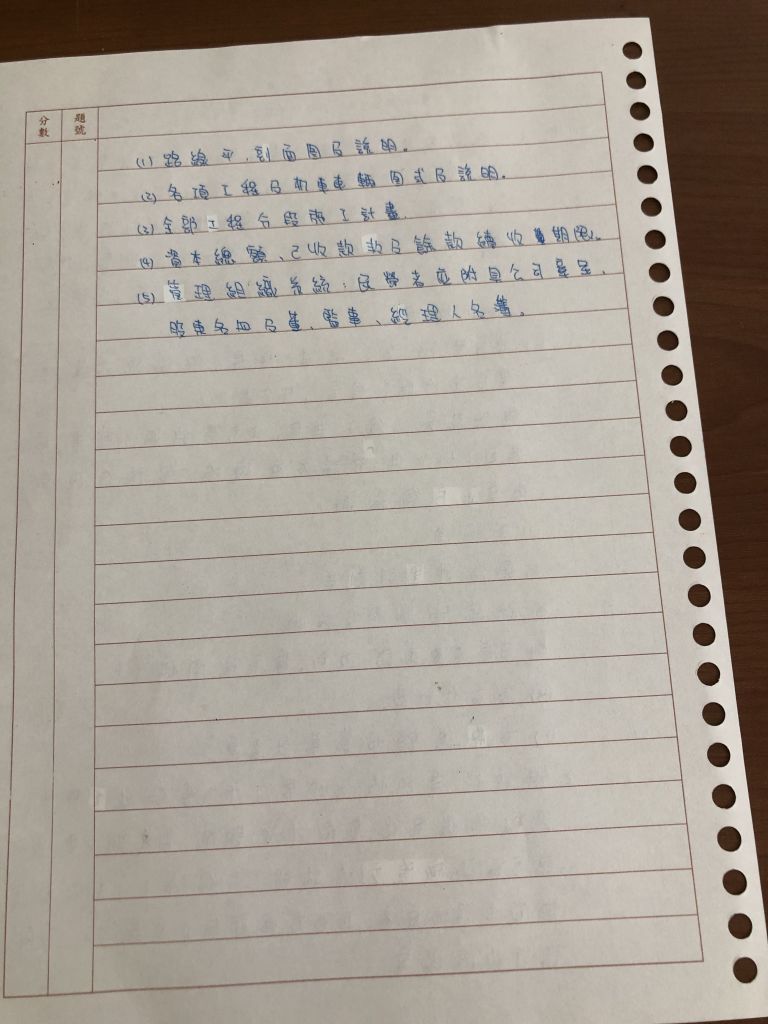 分數 題號
(1) 路線平、剖面圖及說明。
(2) 各項工程及機車車輛圖式及說明。
(3) 全部工程分段施工計畫。
(4) 資本總額、已收款數及餘款續收期限。
(5) 管理組織系統:民營者並附具公司章呈、
股東名冊及董、監事、經理人名簿。